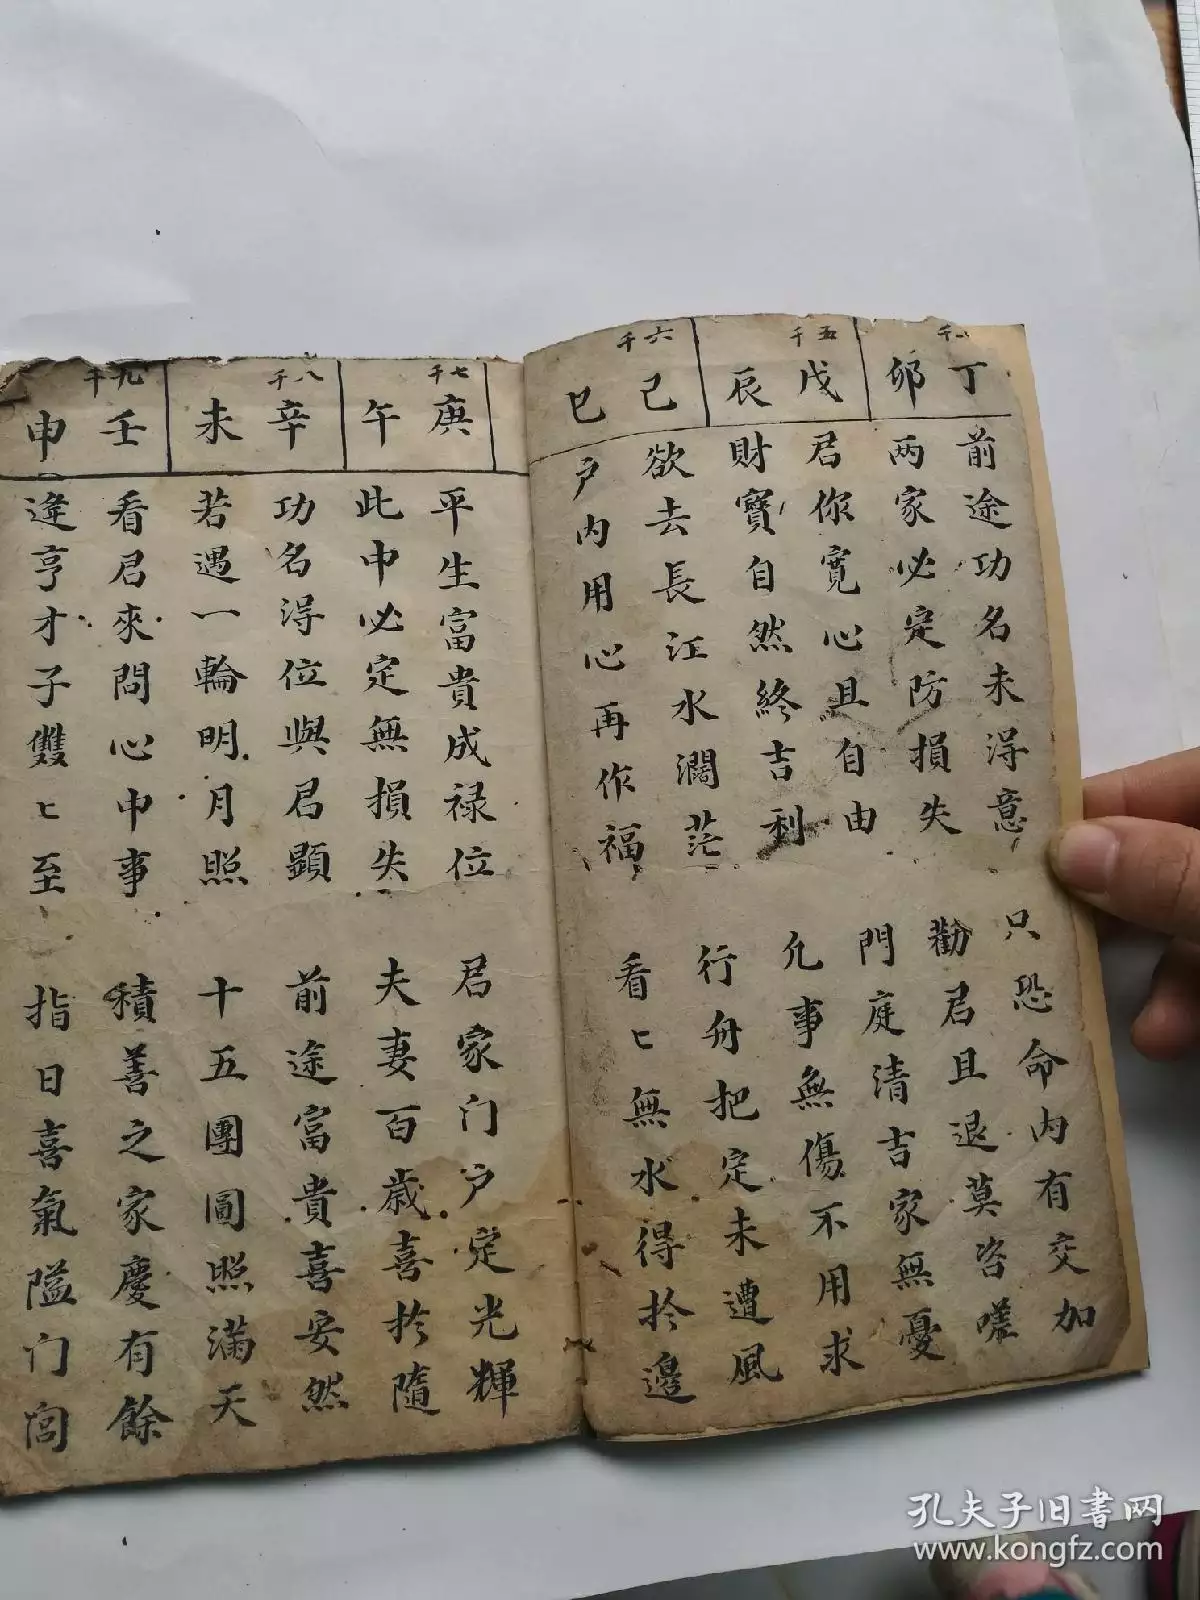 丁卯
前途功名未得意 只恐命内有交加
两家必定防損失 勸君且退莫咨嗟
五千
戊辰
君你寬心且自由 門庭清吉家無憂
財寶自然終吉利 凢事無傷不用求
六千
己巳
欲去長江水濶茫 行舟把定未遭風
户内用心再作福 看〻無水得於邊
七千
庚午
平生富貴成禄位 君家门户定光輝
此中必定無損失 夫妻百歲喜於隨
八千
辛未
功名得位與君顕 前途富貴喜安然
若遇一輪明月照 十五團圓照滿天
九千
壬申
看君來問心中事 積善之家慶有餘
逢亨才子雙〻至 指日喜氣隘门闾
孔夫子旧书网
www.kongfz.com